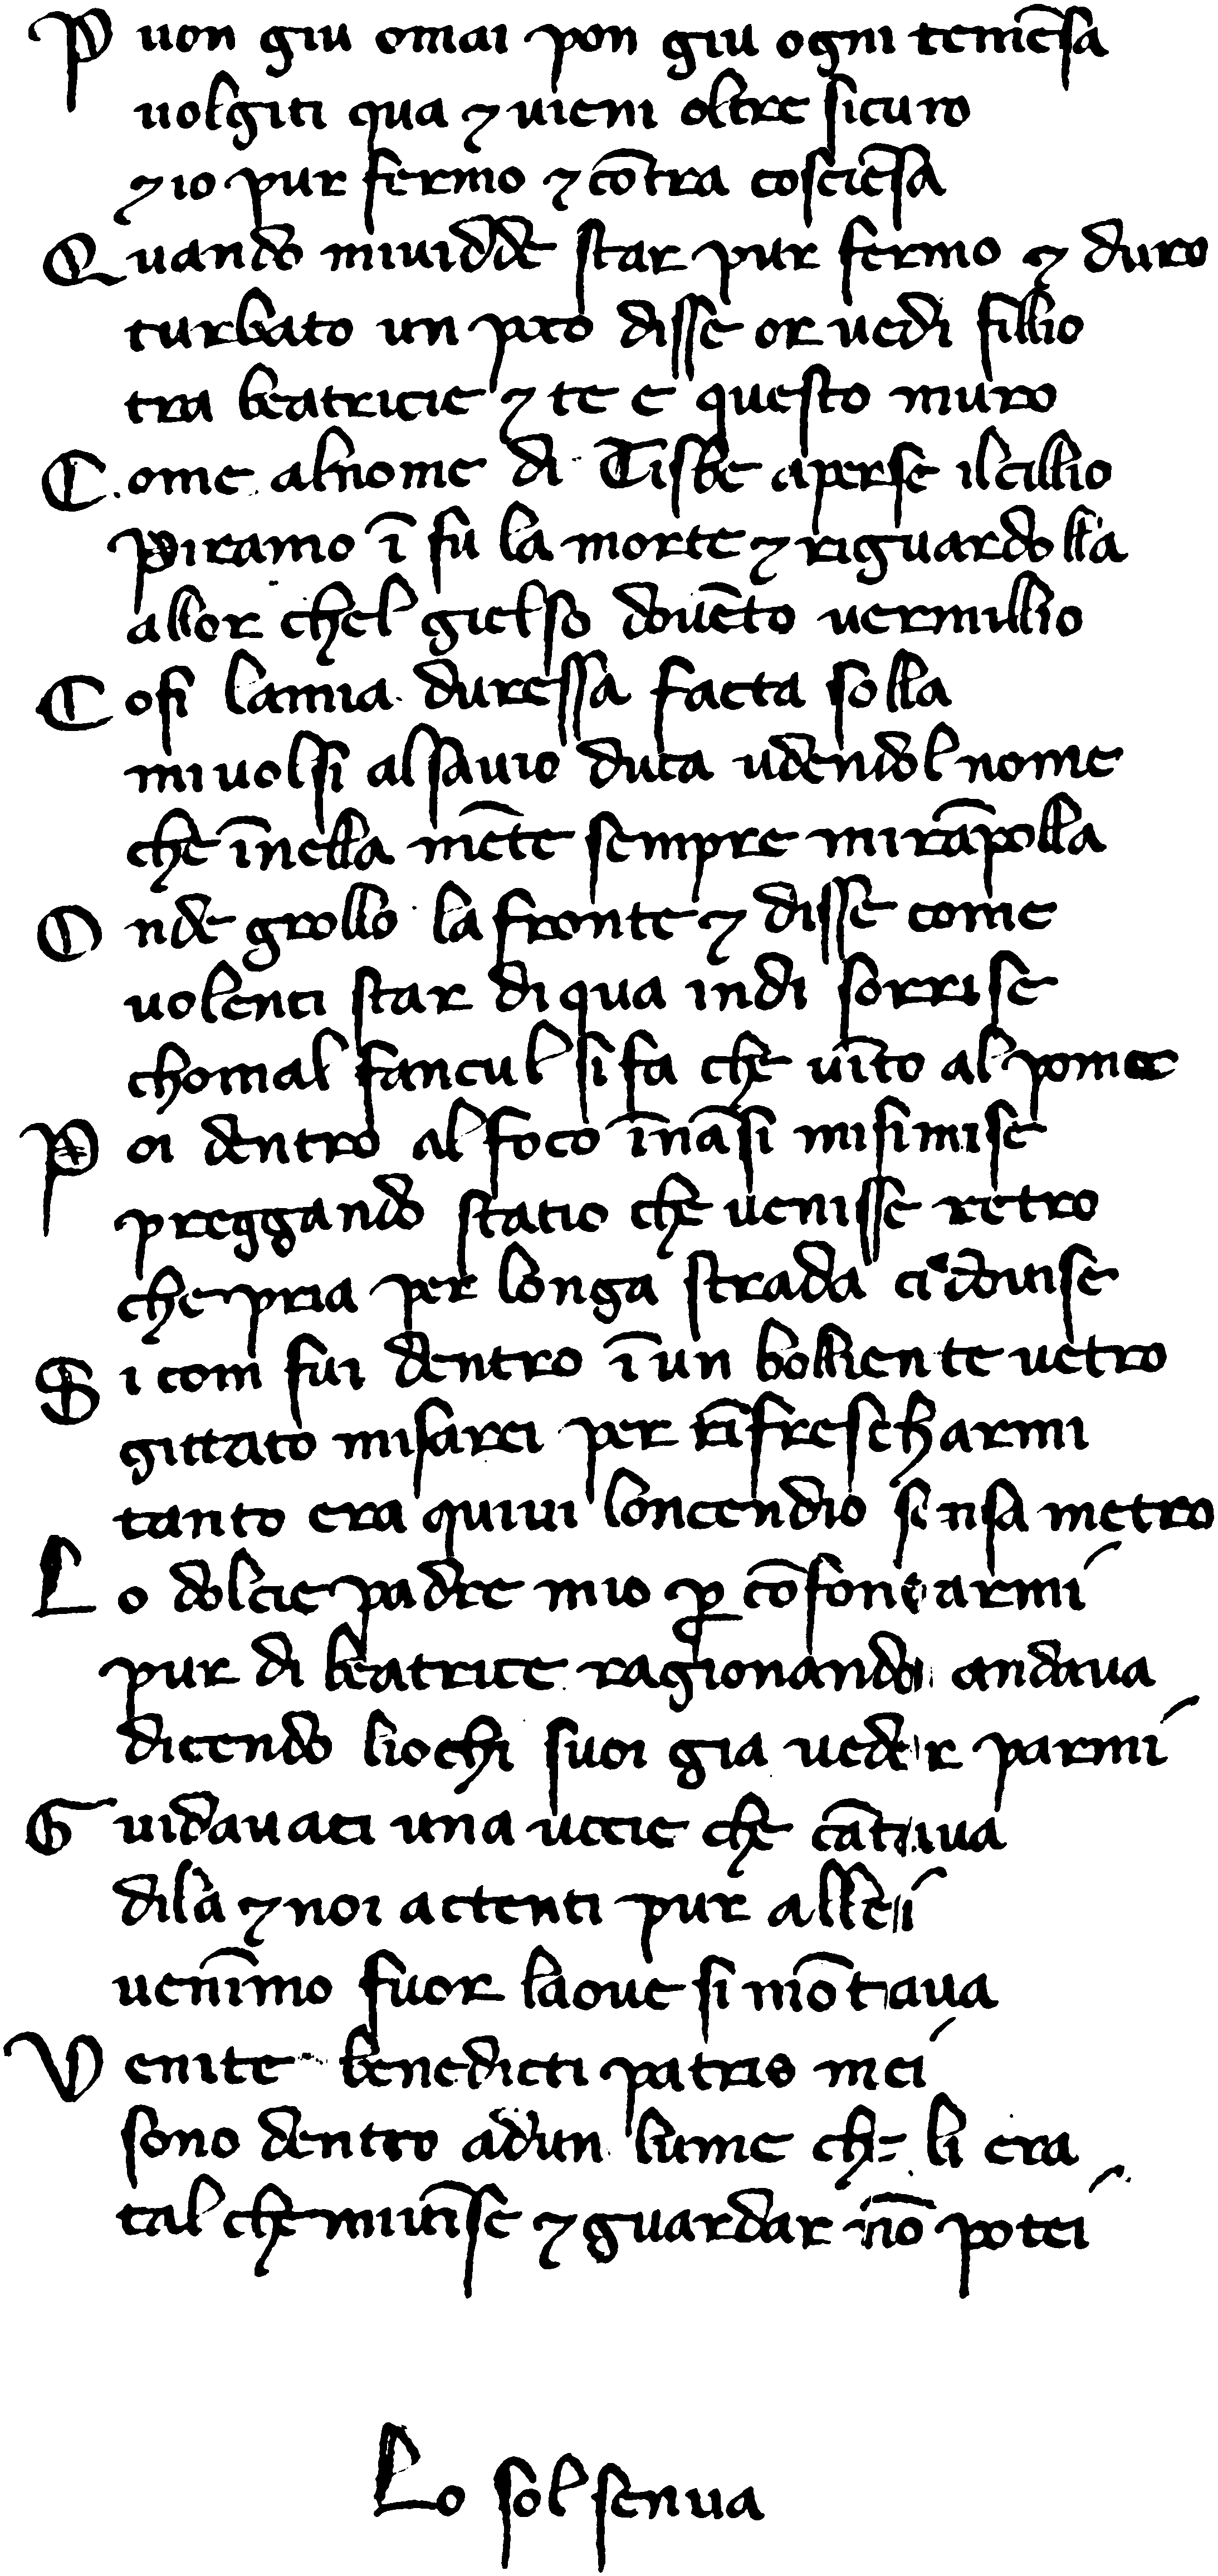 P uon giu omai pon giu ogni temẽsa
uolgiti qua ⁊ uieni oltre sicuro
⁊ io pur fermo ⁊ cõtra cosciẽsa
Quando miuidde star pur fermo ⁊ duro
turbato un poco disse or uedi fillio
tra beatricie ⁊ te e questo muro
C.ome alnome di Tisbe aperse ilcillio
piramo ĩ fu la morte ⁊ riguardolla
allor chel gielso douẽto uermillio
C osi lamia duressa facta solla
miuolsi alsauio duca udendol nome
che ĩnella mẽte sempre mirãpolla
O nde grollo la fronte ⁊ disse come
uolenci star di qua indi sorrise
chomal fanciul si fa che uĩto al pome
P oi dentro al foco ĩnãsi misimise
preggando statio che uenisse retro
che pria per longa strada ci douise
S i com fui dentro ĩ un bolliente uetro
gittato misarei per rĩfrescharmi
tanto era quiui loncendio sensa metro
L o dolcie padre mio p̱ cõfonearmi
pur di beatrice ragionando andaua
dicendo liochi suoi gia ueder parmi
G uidauaci una uocie che cãtaua
dila ⁊ noi actenti pur allei
uenĩmo fuor laoue si mõtaua
V enite benedicti patris mei
sono dentro adun lume che li era
tal che miuĩse ⁊ guardar nõ potei
Lo sol senua